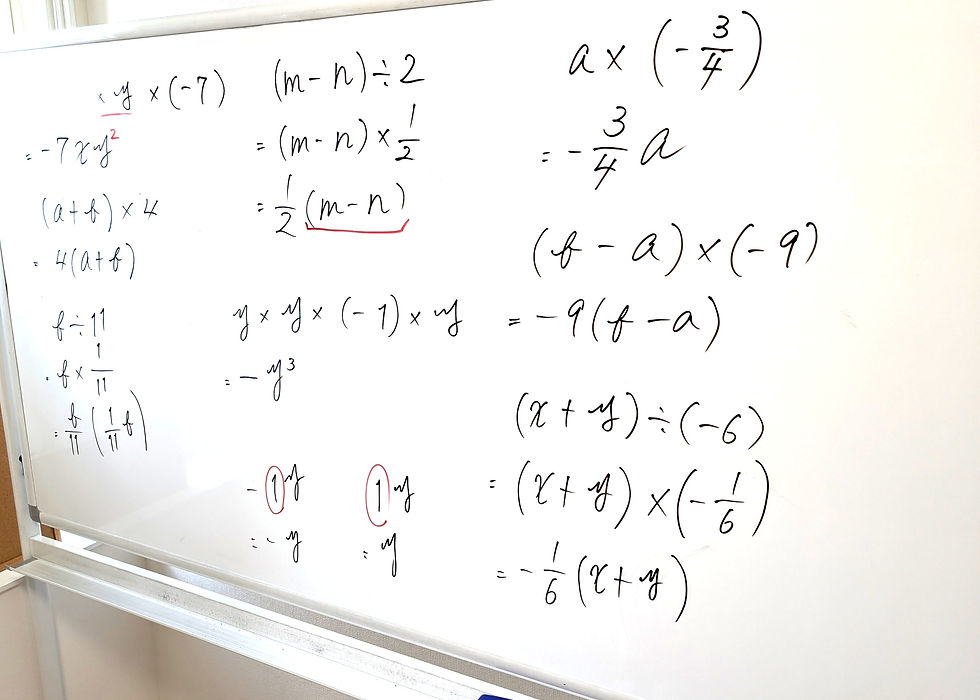 × y × (-7)
= -7xy²
(a+b) × 4
= 4(a+b)
b ÷ 11
= b × 1/11
= b/11 (1/11 b)
(m-n) ÷ 2
= (m-n) × 1/2
= 1/2 (m-n)
y × y × (-1) × y
= -y³
-1y
= -y
1y
= y
a × (-3/4)
= -3/4 a
(b-a) × (-9)
= -9(b-a)
(x+y) ÷ (-6)
= (x+y) × (-1/6)
= -1/6 (x+y)